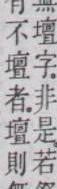 無壇字。非是。若
有不壇者。壇則無